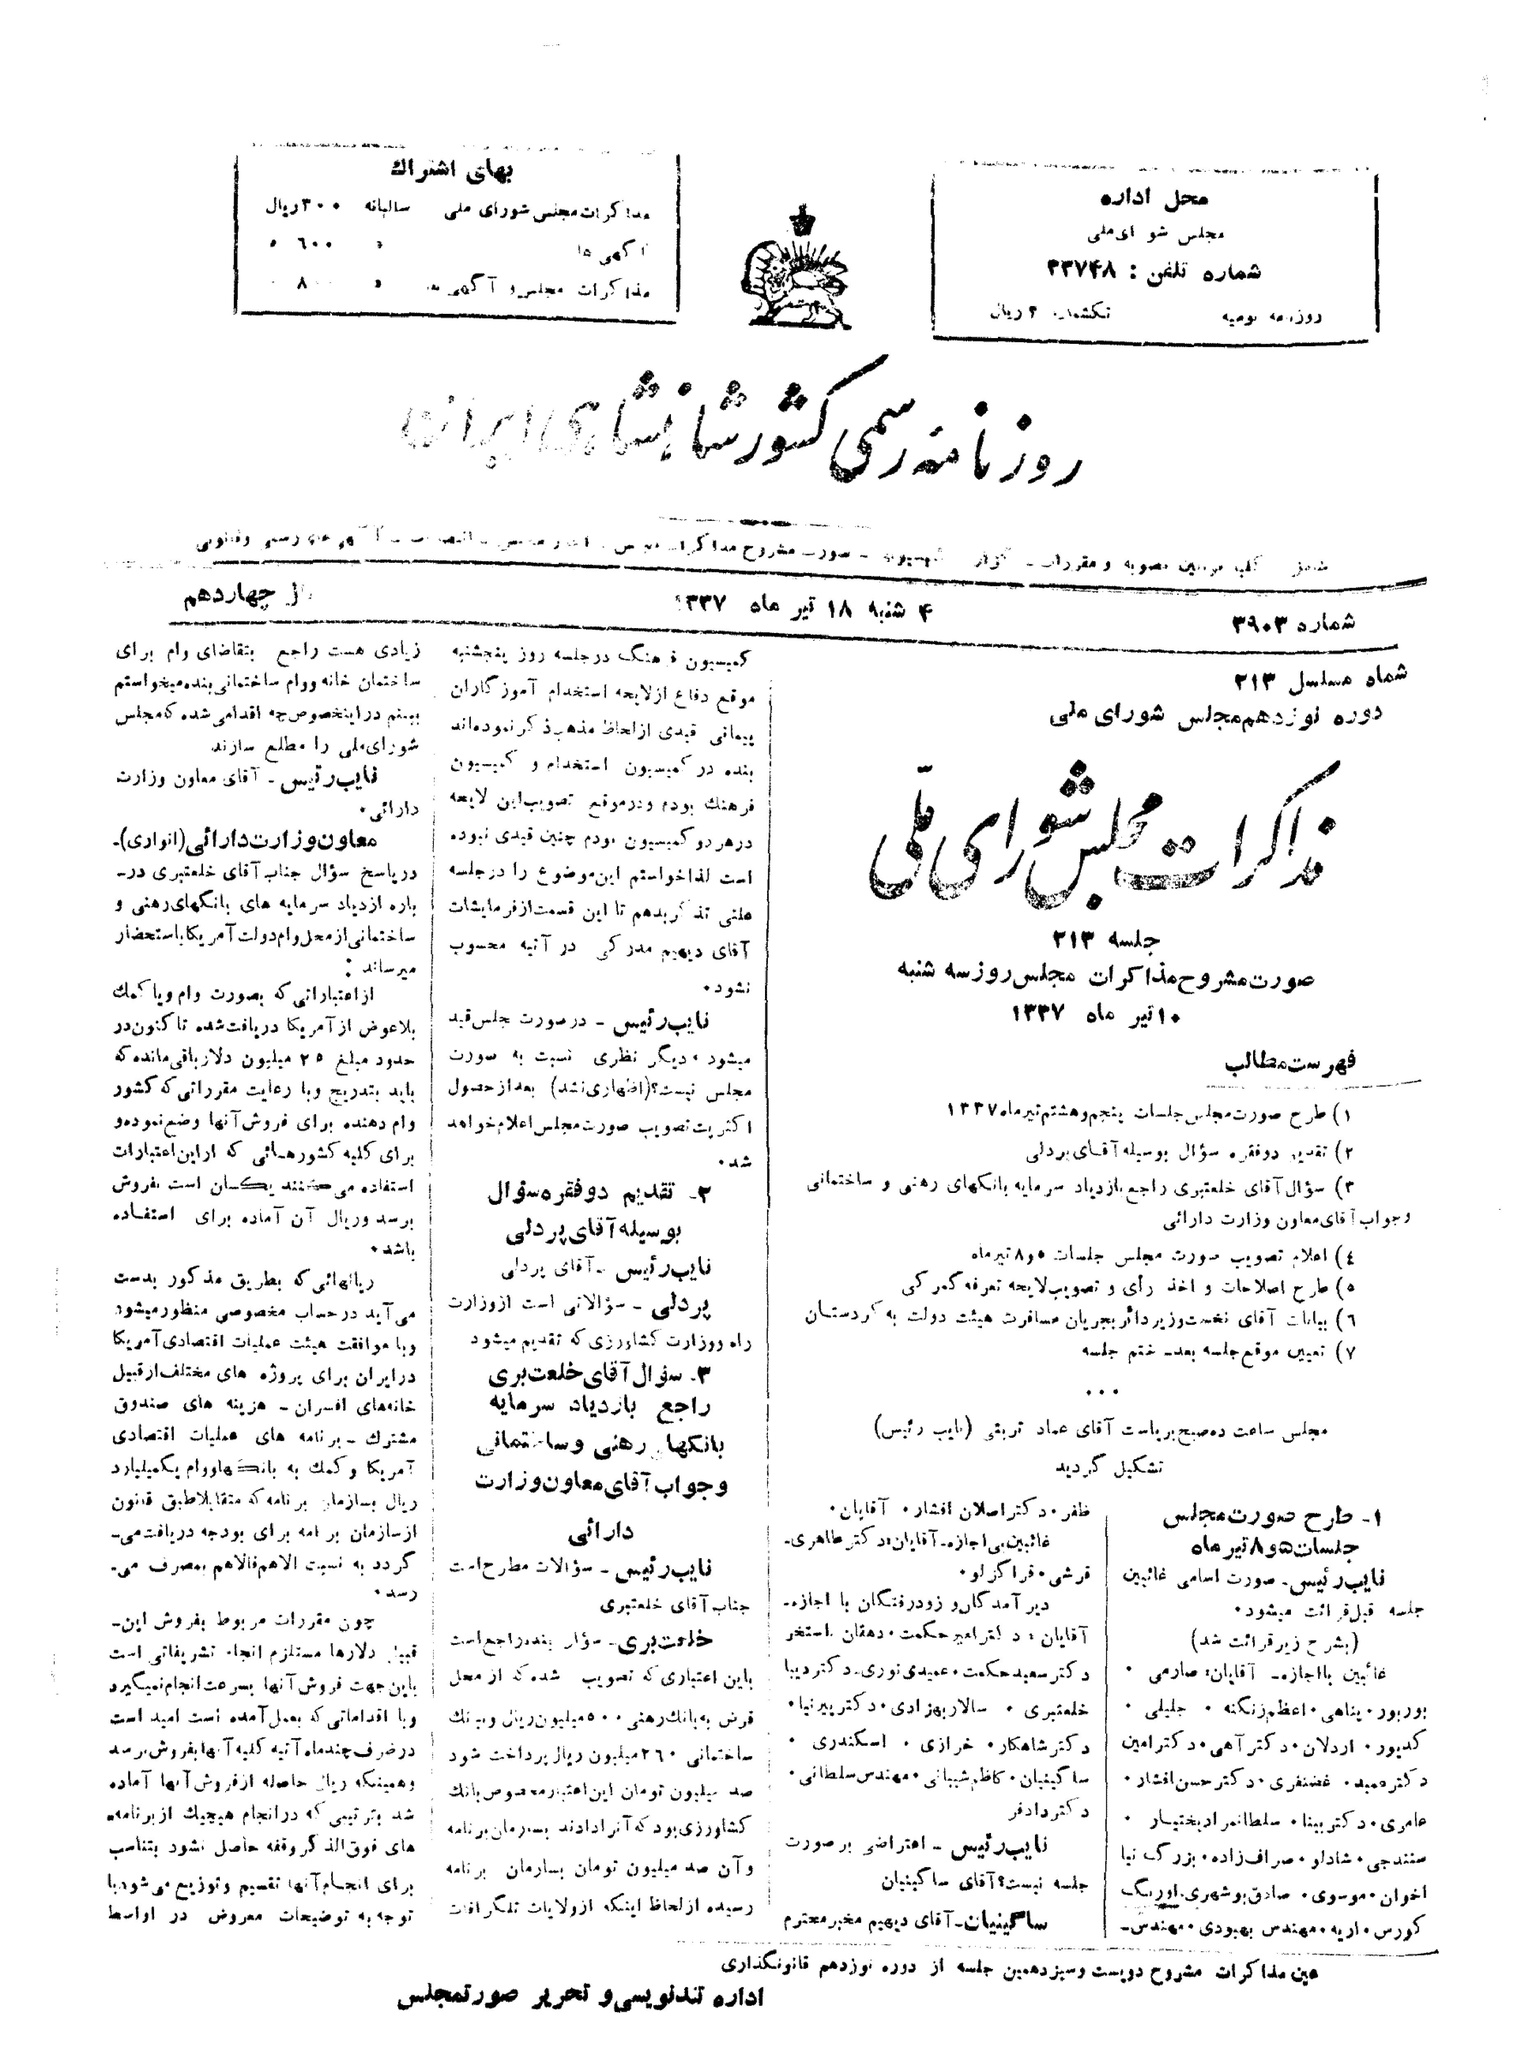 محل اداره
مجلس شو ای‌ملی
شماره تلفن : ۳۳۷۴۸
روزنامه یومیه تکشماره ۲ ریال
بهای اشتراك
مذاکرات مجلس شورای ملی سالیانه ۳۰۰ ریال
آگهی ها » ٦٠٠ »
مذاکرات مجلس و آگهی ها »
روزنامه رسمی کشور شاهنشاهی ایران
شماره ۳۹۰۳
۴ شنبه ۱۸ تیر ماه ۱۳۳۷
سال چهاردهم
شماره مسلسل ۲۱۳
دوره نوزدهم مجلس شورای ملی
مذاکرات مجلس شورای ملّی
جلسه ۲۱۳
صورت مشروح مذاکرات مجلس روز سه شنبه
۱۰ تیر ماه ۱۳۳۷
فهرست مطالب
۱) طرح صورت مجلس جلسات پنجم و هشتم تیر ماه ۱۳۳۷
۲) تقدیم دو فقره سؤال بوسیله آقای بردلی
۳) سؤال آقای خلعتبری راجع بازدیاد سرمایه بانکهای رهنی و ساختمانی
و جواب آقای معاون وزارت دارائی
٤) اعلام تصویب صورت مجلس جلسات ٥ و ۸ تیرماه
٥) طرح اصلاحات و اخذ رأی و تصویب لایحه تعرفه گمرکی
٦) بیانات آقای نخست وزیر دائر بجریان مسافرت هیئت دولت به کردستان
۷) تعیین موقع جلسه بعد ـ ختم جلسه
۰۰۰
مجلس ساعت ده صبح بریاست آقای عماد تربتی (نایب رئیس)
تشکیل گردید
۱ـ طرح صورت مجلس
جلسات ۵ و ۸ تیر ماه
نایب رئیس ـ صورت اسامی غائبین
جلسه قبل قرائت میشود.
(بشرح زیر قرائت شد)
غائبین بااجازه ـ آقایان: صارمی .
بوربور . پناهی . اعظم زنگنه . جلیلی .
کدیور . اردلان . دکتر آهی . دکتر امین
دکتر عمید . غضنفری . دکتر حسن افشار .
عامری . دکتر بینا . سلطانمراد بختیار .
سنندجی . شادلو . صراف زاده . بزرگ نیا
اخوان . موسوی . صادق بوشهری . اورنگ
کورس . اریه . مهندس بهبودی . مهندس ـ
ظفر . دکتر اصلان افشار . آقایان .
غائبین بی اجازه ـ آقایان: دکتر طاهری ـ
قرشی . قراگزلو .
دیر آمدگان و زود رفتگان با اجازه ـ
آقایان : دکتر امیر حکمت . دهقان . استخر
دکتر سعید حکمت . عمیدی نوری . دکتر دیبا
خلعتبری . سالار بهزادی . دکتر پیرنیا .
دکتر شاهکار . خرازی . اسکندری .
ساگینیان . کاظم شیبانی . مهندس سلطانی .
دکتر دادفر
نایب رئیس ـ اعتراضی بر صورت
جلسه نیست؟ آقای ساگینیان
ساگینیان ـ آقای دیهیم مخبر محترم
کمیسیون فرهنگ در جلسه روز پنجشنبه
موقع دفاع از لایحه استخدام آموزگاران
پیمانی قیدی از لحاظ مذهب ذکر نموده‌اند
بنده در کمیسیون استخدام و کمیسیون
فرهنك بودم و در موقع تصویب این لایحه
در هر دو کمیسیون بودم چنین قیدی نبوده
است لذا خواستم این موضوع را در جلسه
علنی تذکر بدهم تا این قسمت از فرمایشات
آقای دیهیم مدرکی در آتیه محسوب
نشود.
نایب رئیس ـ در صورت جلس قید
میشود . دیگر نظری نسبت به صورت
مجلس نیست؟ (اظهاری نشد) بعد از حصول
اکثریت تصویب صورت مجلس اعلام خواهد
شد.
۲ـ تقدیم دو فقره سئوال
بوسیله آقای پردلی
نایب رئیس ـ آقای پردلی
پردلی ـ سؤالاتی است از وزارت
راه و وزارت کشاورزی که تقدیم میشود
۳ـ سئوال آقای خلعتبری
راجع بازدیاد سرمایه
بانکهای رهنی و ساختمانی
و جواب آقای معاون وزارت
دارائی
نایب رئیس ـ سؤالات مطرح است
جناب آقای خلعتبری
خلعتبری ـ سؤال بنده راجع است
باین اعتباری که تصویب شده که از محل
قرض به بانك رهنی ۵۰۰ میلیون ریال و ببانك
ساختمانی ۲٦۰ میلیون ریال پرداخت شود
صد میلیون تومان این اعتبار مخصوص بانك
کشاورزی بود که آنرا دادند بسازمان برنامه
و آن صد میلیون تومان بسازمان برنامه
رسیده از لحاظ اینکه از ولایات تلگرافات
زیادی هست راجع بتقاضای وام برای
ساختمان خانه و وام ساختمانی بنده میخواستم
ببینم در اینخصوص چه اقدامی شده که مجلس
شورای ملی را مطلع سازند
نایب رئیس ـ آقای معاون وزارت
دارائی.
معاون وزارت دارائی (انواری) ـ
در پاسخ سؤال جناب آقای خلعتبری در ـ
باره ازدیاد سرمایه های بانکهای رهنی و
ساختمانی از محل وام دولت آمریکا باستحضار
میرساند :
از اعتباراتی که بصورت وام و یا کمك
بلاعوض از آمریکا دریافت شده تا کنون در
حدود مبلغ ۲۵ میلیون دلار باقی مانده که
باید بتدریج و با رعایت مقرراتی که کشور
وام دهنده برای فروش آنها وضع نموده و
برای کلیه کشورهائی که از این اعتبارات
استفاده می‌کنند یکسان است بفروش
برسد و ریال آن آماده برای استفاده
باشد.
ریالهائی که بطریق مذکور بدست
می‌آید در حساب مخصوصی منظور میشود
و با موافقت هیئت عملیات اقتصادی آمریکا
در ایران برای پروژه های مختلف از قبیل
خانه‌های افسران ـ هزینه های صندوق
مشترك ـ برنامه های عملیات اقتصادی
آمریکا و کمك به بانکها و وام یکمیلیارد
ریال بسازمان برنامه که متقابلا طبق قانون
از سازمان برنامه برای بودجه دریافت می ـ
گردد به نسبت الاهم فالاهم بمصرف می ـ
رسد.
چون مقررات مربوط بفروش این ـ
قبیل دلارها مستلزم انجام تشریفاتی است
باین جهت فروش آنها بسرعت انجام نمیگیرد
و با اقداماتی که بعمل آمده است امید است
در ظرف چند ماه آتیه کلیه آنها بفروش برسد
و همینکه ریال حاصله از فروش آنها آماده
شد بترتیبی که در انجام هیچیك از برنامه ـ
های فوق الذکر وقفه حاصل نشود بتناسب
برای انجام آنها تقسیم و توزیع می‌شود با
توجه به توضیحات معروض در اواسط
عین مذاکرات مشروح دویست و سیزدهمین جلسه از دوره نوزدهم قانونگذاری
اداره تندنویسی و تحریر صورتمجلس